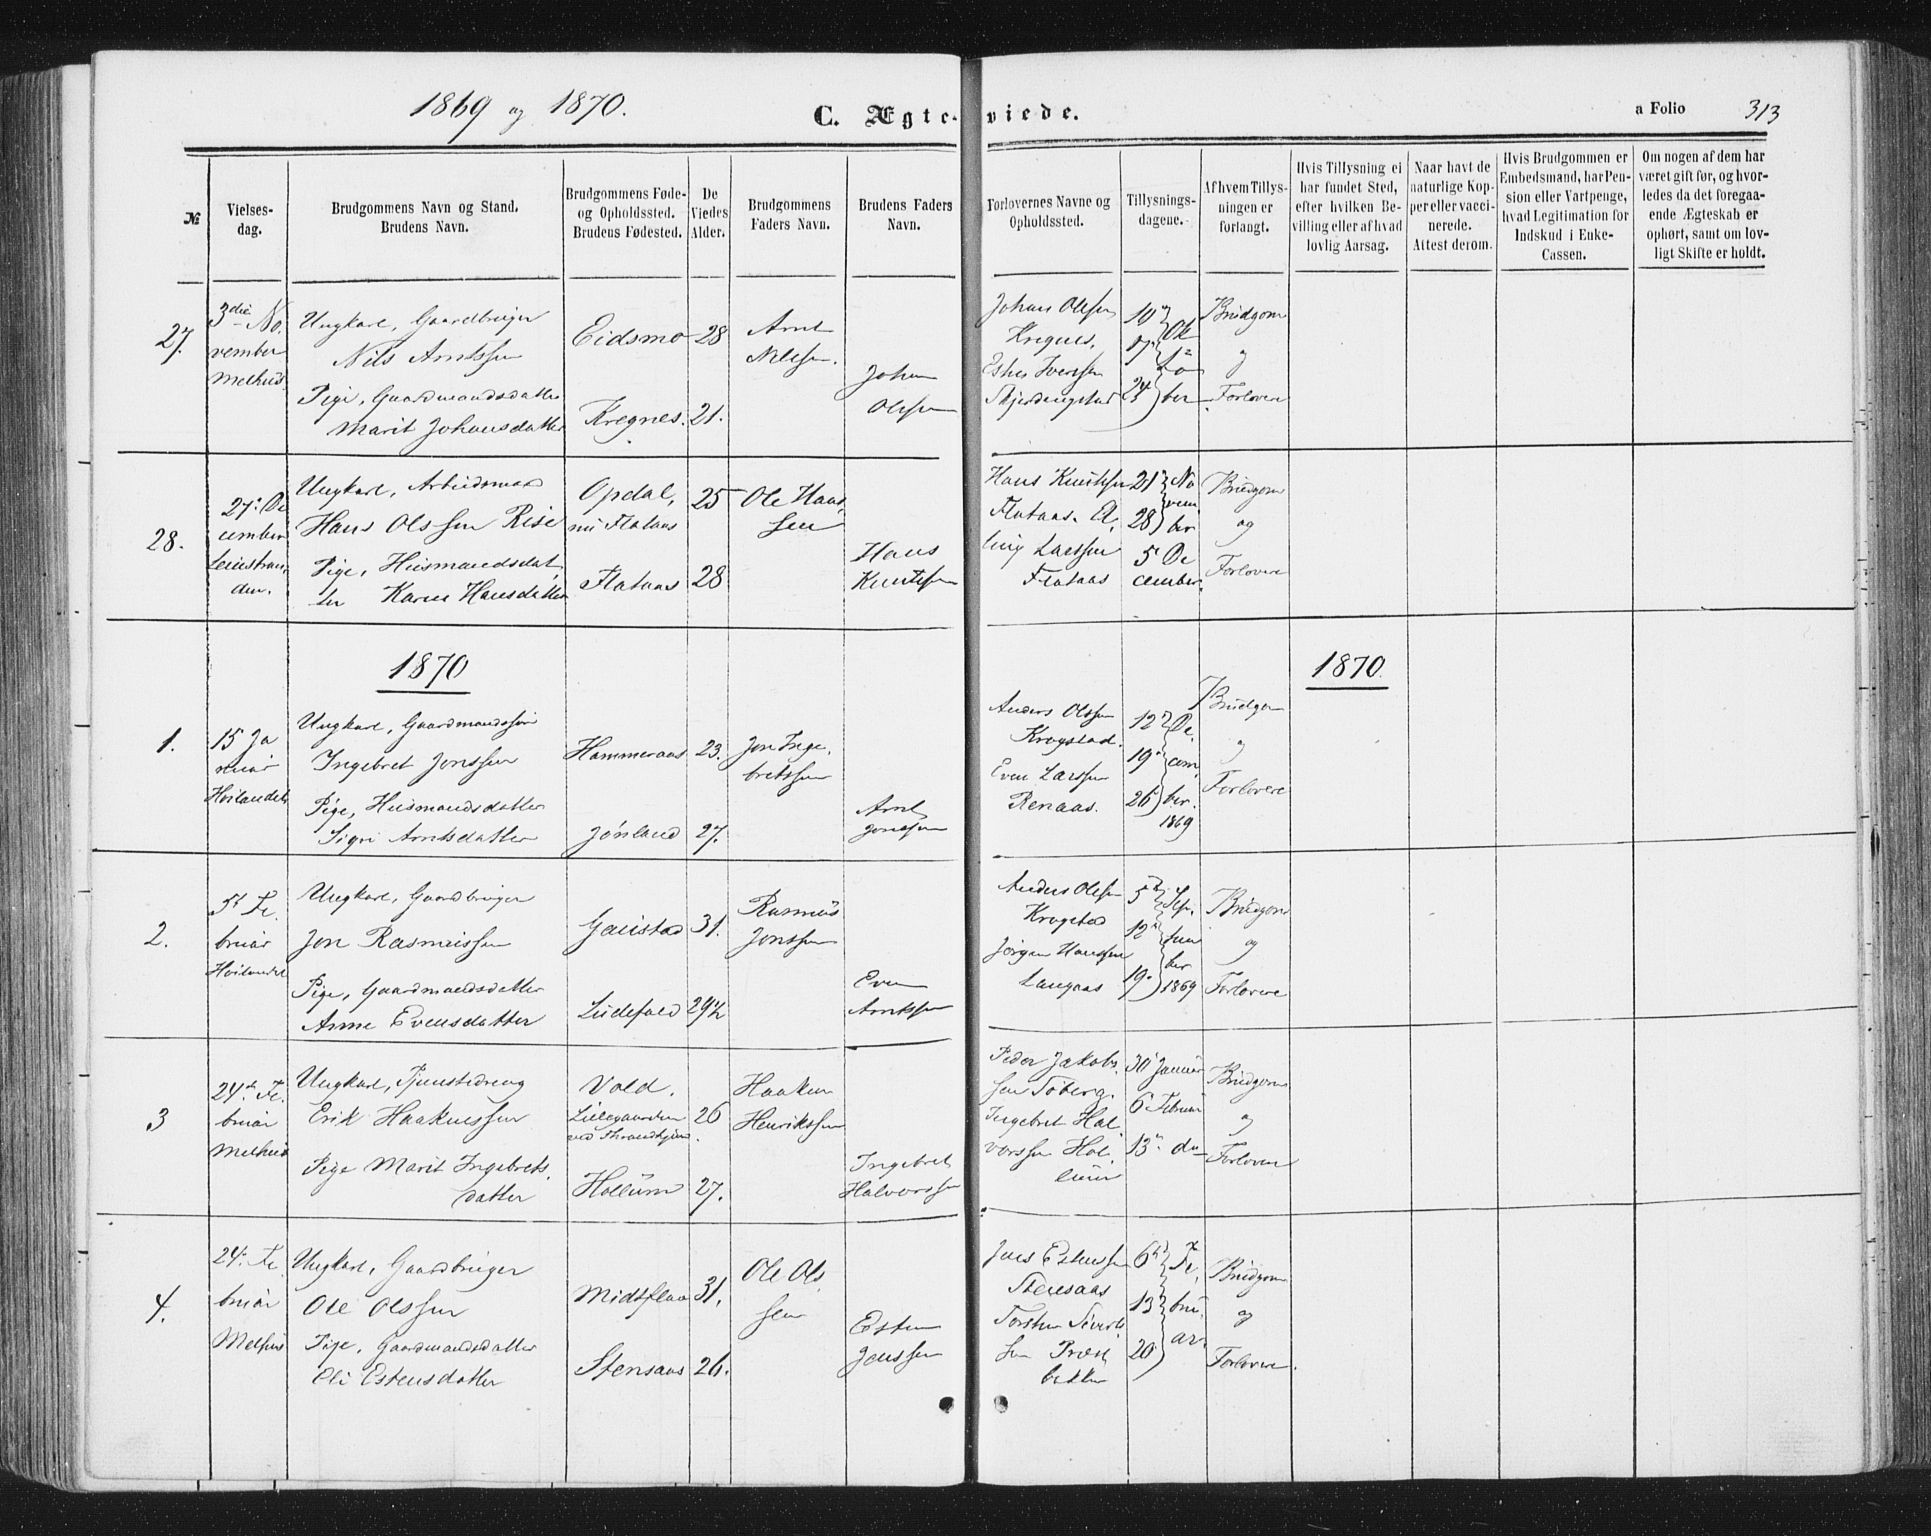 1869 og 1870.
C. Ægteviede.
a Folio 313
№
Vielses-
dag.
Brudgommens Navn og Stand.
Brudens Navn.
Brudgommens Føde-
og Opholdssted.
Brudens Fødested.
De
Viedes
Alder.
Brudgommens
Faders Navn.
Brudens Faders
Navn.
Forlovernes Navne og
Opholdssted.
Tillysnings-
dagene.
Af hvem Tillys-
ningen er
forlangt.
Hvis Tillysning ei
har fundet Sted,
efter hvilken Be-
villing eller af hvad
lovlig Aarsag.
Naar havt de
naturlige Kop-
per eller vacci-
nerede.
Attest derom.
Hvis Brudgommen er
Embedsmand, har Pen-
sion eller Vartpenge,
hvad Legitimation for
Indskud i Enke-
Cassen.
Om nogen af dem har
været gift før, og hvor-
ledes da det foregaa-
ende Ægteskab er
ophørt, samt om lov-
ligt Skifte er holdt.
27.
3die No-
vember
Melhus
Ungkarl, Gaardbruger
Nils Arntssen
Pige, Gaardmandsdatter
Marit Johansdatter
Eidsmo
Kregnes.
28
21.
Arnt
Nilssen.
Johan
Olsen
Johan Olsen
Kregnes,
Esten Iversen
Skjerdingstad
10
17
24
Ok
to
ber
Brudgom
og
Forlovere
28.
27. De
cember
Leinstran,
den.
Ungkarl, Arbeidsmand
Hans Olssen Rise
Pige, Huusmandsdat
ter Karen Hansdatter
Opdal,
nu Flataas
Flataas
25
28
Ole Hans,
sen
Hans
Knutssen
Hans Knutssen
Flataas. El,
ling Larssen
Flataas
21
28
No
vem
ber
5 De
cember
Brudgom
og
Forlovere
1870
1870.
1.
15 Ja
nuar
Høilandet
Ungkarl, Gaardmandssøn
Ingebret Jonssen
Pige, Husmandsdatter
Sigri Arntsdatter
Hammeraas
Jønland
23.
27.
Jon Inge,
bretssen
Arnt
Jonssen
Anders Olssen
Krogstad.
Even Larssen
Renaas.
12
19
26
De,
cem,
ber.
1869
Brudgom
og
Forlovere
2.
5t Fe,
bruar
Høilandet
Ungkarl, Gaardbruger
Jon Rasmussen
Pige, Gaardmandsdatter
Anne Evensdatter
Gaustad
Lidefald
31.
29½
Rasmus
Jonssen
Even
Arntssen
Anders Olsen
Krogstad
Jørgen Hanssen
Langaas
5
12
19
Sep,
tem
ber
1869
Brudgom
og
Forlovere
3
24. Fe,
bruar
Melhus
Ungkarl, Tjenestedreng
Erik Haakenssen
Pige Marit Ingebrets,
datter
Vold.
Lillegaarden
ved Throndhjem.
Hollum
26
27.
Haaken
Henrikssen
Ingebret
Halvorssen
Peder Jakobs,
sen Søberg.
Ingebret Hal,
vorssen Hol,
lum
30 Januar
6 Februar
13 do
Brudgom
og
Forlovere
4.
24. Fe,
bruar
Melhus
Ungkarl, Gaardbruger
Ole Olssen
Pige, Gaardmandsdatter
Eli Estensdatter
Midtflaa
Stensaas
31.
26.
Ole Ols,
sen
Esten
Jenssen
Jens Estenssen
Stensaas
Torsten Siverts
sen Præst
bakken
6
13
20
Fe,
bru,
ar.
Brudgom
og
Forlovere.